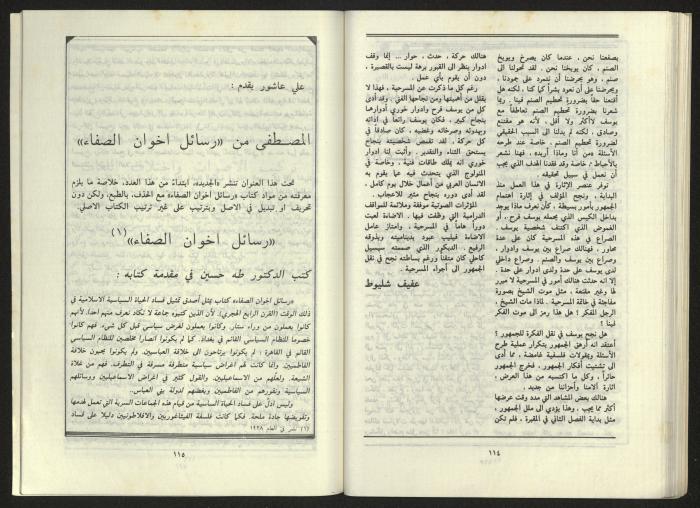 بصفعتنا نحن ، عندما كان يصرخ ويوبخ
الصنم ، كان يوبخنا نحن ، لقد تحولنا الى
صنم ، وهو يحرضنا أن نتمرد على جمودنا ,
ويحرضنا على أن نعود بشراً كما كنا ، لكنه هل
أقنعنا حقاً بضرورة تحطيم الصنم فينا . ربما
شعرنا بضرورة تحطيم الصنم تعاطفاً مع
يوسف لا أكثر ولا أقل ، لأنه هو مقتنع
وصادق . لكنه لم يدلنا الى السبب الحقيقي
لضرورة تحطيم الصنم . خاصة عند طرحه
الأسئلة «من أنا وماذا أريد» ، فهنا نشعر
بالاحباط ، خاصة وقد فقدنا الهدف الذي يجب
أن نعمل في سبيل تحقيقه .
توفر عنصر الإثارة في هذا العمل منذ
البداية ، ونجح المؤلف في إثارة اهتمام
الجمهور بأمور بسيطة ، كأن نعرف ماذا يوجد
بداخل الكيس الذي يحمله يوسف فرح ، أو
الغموض الذي اكتنف شخصية يوسف .
الصراع في هذه المسرحية كان على عدة
محاور ، فهنالك صراع بين يوسف وادوار ،
وصراع بين يوسف والصنم . وصراع داخلي
لدى يوسف على حدة ولدى ادوار على حدة .
إلا انه حدثت هنالك أمور في المسرحية لا مبرر
لها وغير مقنعة ، مثل موت الشيخ بصورة
مفاجئة في خاتمة المسرحية . لماذا مات الشيخ ,
الرجل المفكر ؟ هل هذا رمز الى موت الفكر
فينا ؟
هل نجح يوسف في نقل الفكرة للجمهور ؟
أعتقد انه أرهق الجمهور بتكرار عملية طرح
الأسئلة وبمقولات فلسفية غامضة ، مما أدى
الى تشتيت أفكار الجمهور ، فخرج الجمهور
حائراً ، وكل ما اكتسبه من هذا العرض ،
اثارة آلامنا وأحزاننا من جديد .
هنالك بعض المشاهد التي مدد وقت عرضها
أكثر مما يجب ، وهذا يؤدي الى ملل الجمهور ،
مثل بداية الفصل الثاني في المقبرة ، فلم تكن
هنالك حركة ، حدث ، حوار ... إنما وقف
ادوار ينظر الى القبور برهة ليست بالقصيرة ،
دون أن يقوم بأي عمل .
رغم كل ما ذكرت عن المسرحية ، فهذا لا
يقلل من أهميتها ومن نجاحها الفني . وقد أدى
كل من يوسف فرح وادوار خوري أدوارهما
بنجاح كبير ، فكان يوسف رائعاً في أدائه
وبهدوئه وصرخاته وغضبه ، كان صادقاً في
كل حركة . لقد تقمص شخصيته بنجاح
يستحق الثناء والتقدير . وأثبت لنا ادوار
خوري انه يملك طاقات فنية ، وخاصة في
المنولوج الذي يتحدث فيه عما يقوم به
الانسان العربي من أعمال خلال يوم كامل .
لقد أدى دوره بنجاح مثير للاعجاب .
المؤثرات الصوتية موفقة وملائمة للمواقف
الدرامية التي وظفت فيها . الاضاءة لعبت
دوراً هاماً في المسرحية ، وامتاز عامل
الاضاءة فيليب عبود بديناميته وبذوقه
الرفيع . الديكور الذي صممه سيسيل
كاحلي كان متقناً ورغم بساطته نجح في نقل
الجمهور الى أجواء المسرحية .
عفيف شليوط
١١٤
علي عاشور يقدم :
المصطفى من «رسائل اخوان الصفاء»
تحت هذا العنوان تنشر «الجديد»، ابتداءً من هذا العدد، خلاصة ما يلزم
معرفته من مواد كتاب «رسائل اخوان الصفاء» مع الحذف، بالطبع، ولكن دون
تحريف او تبديل في الاصل وبترتيب على غير ترتيب الكتاب الاصلي.
«رسائل اخوان الصفاء»(١)
كتب الدكتور طه حسين في مقدمة كتابه :
«رسائل اخوان الصفاء» كتاب يمثل أصدق تمثيل فساد الحياة السياسية الاسلامية في
ذلك الوقت (القرن الرابع الهجري)، لأن الذين كتبوه جماعة لا نكاد نعرف منهم احداً، لأنهم
كانوا يعملون من وراء ستار، وكانوا يعملون لغرض سياسي قبل كل شيء. فهم كانوا
خصوماً للنظام السياسي القائم في بغداد. كما لم يكونوا أنصاراً مخلصين للنظام السياسي
القائم في القاهرة : لم يكونوا يرتاحون الى خلافة العباسيين، ولم يكونوا يحبون خلافة
الفاطميين. وانما كانت لهم أغراض سياسية متطرفة مسرفة في التطرف. فهم من غلاة
الشيعة. ولعلهم من الاسماعيليين، والقول كثير في أغراض الاسماعيليين ووسائلهم
السياسية ونفورهم من الفاطميين وبغضهم لدولة بني العباس.
وليس أدلّ على فساد الحياة السياسية من قيام هذه الجماعات السرية التي تعمل لهدمها
وتقويضها جادة ملحة. فكما كانت فلسفة الفيثاغوريين والافلاطونيين دليلاً على فساد
(١) نشر في العام ١٩٢٨
١١٥